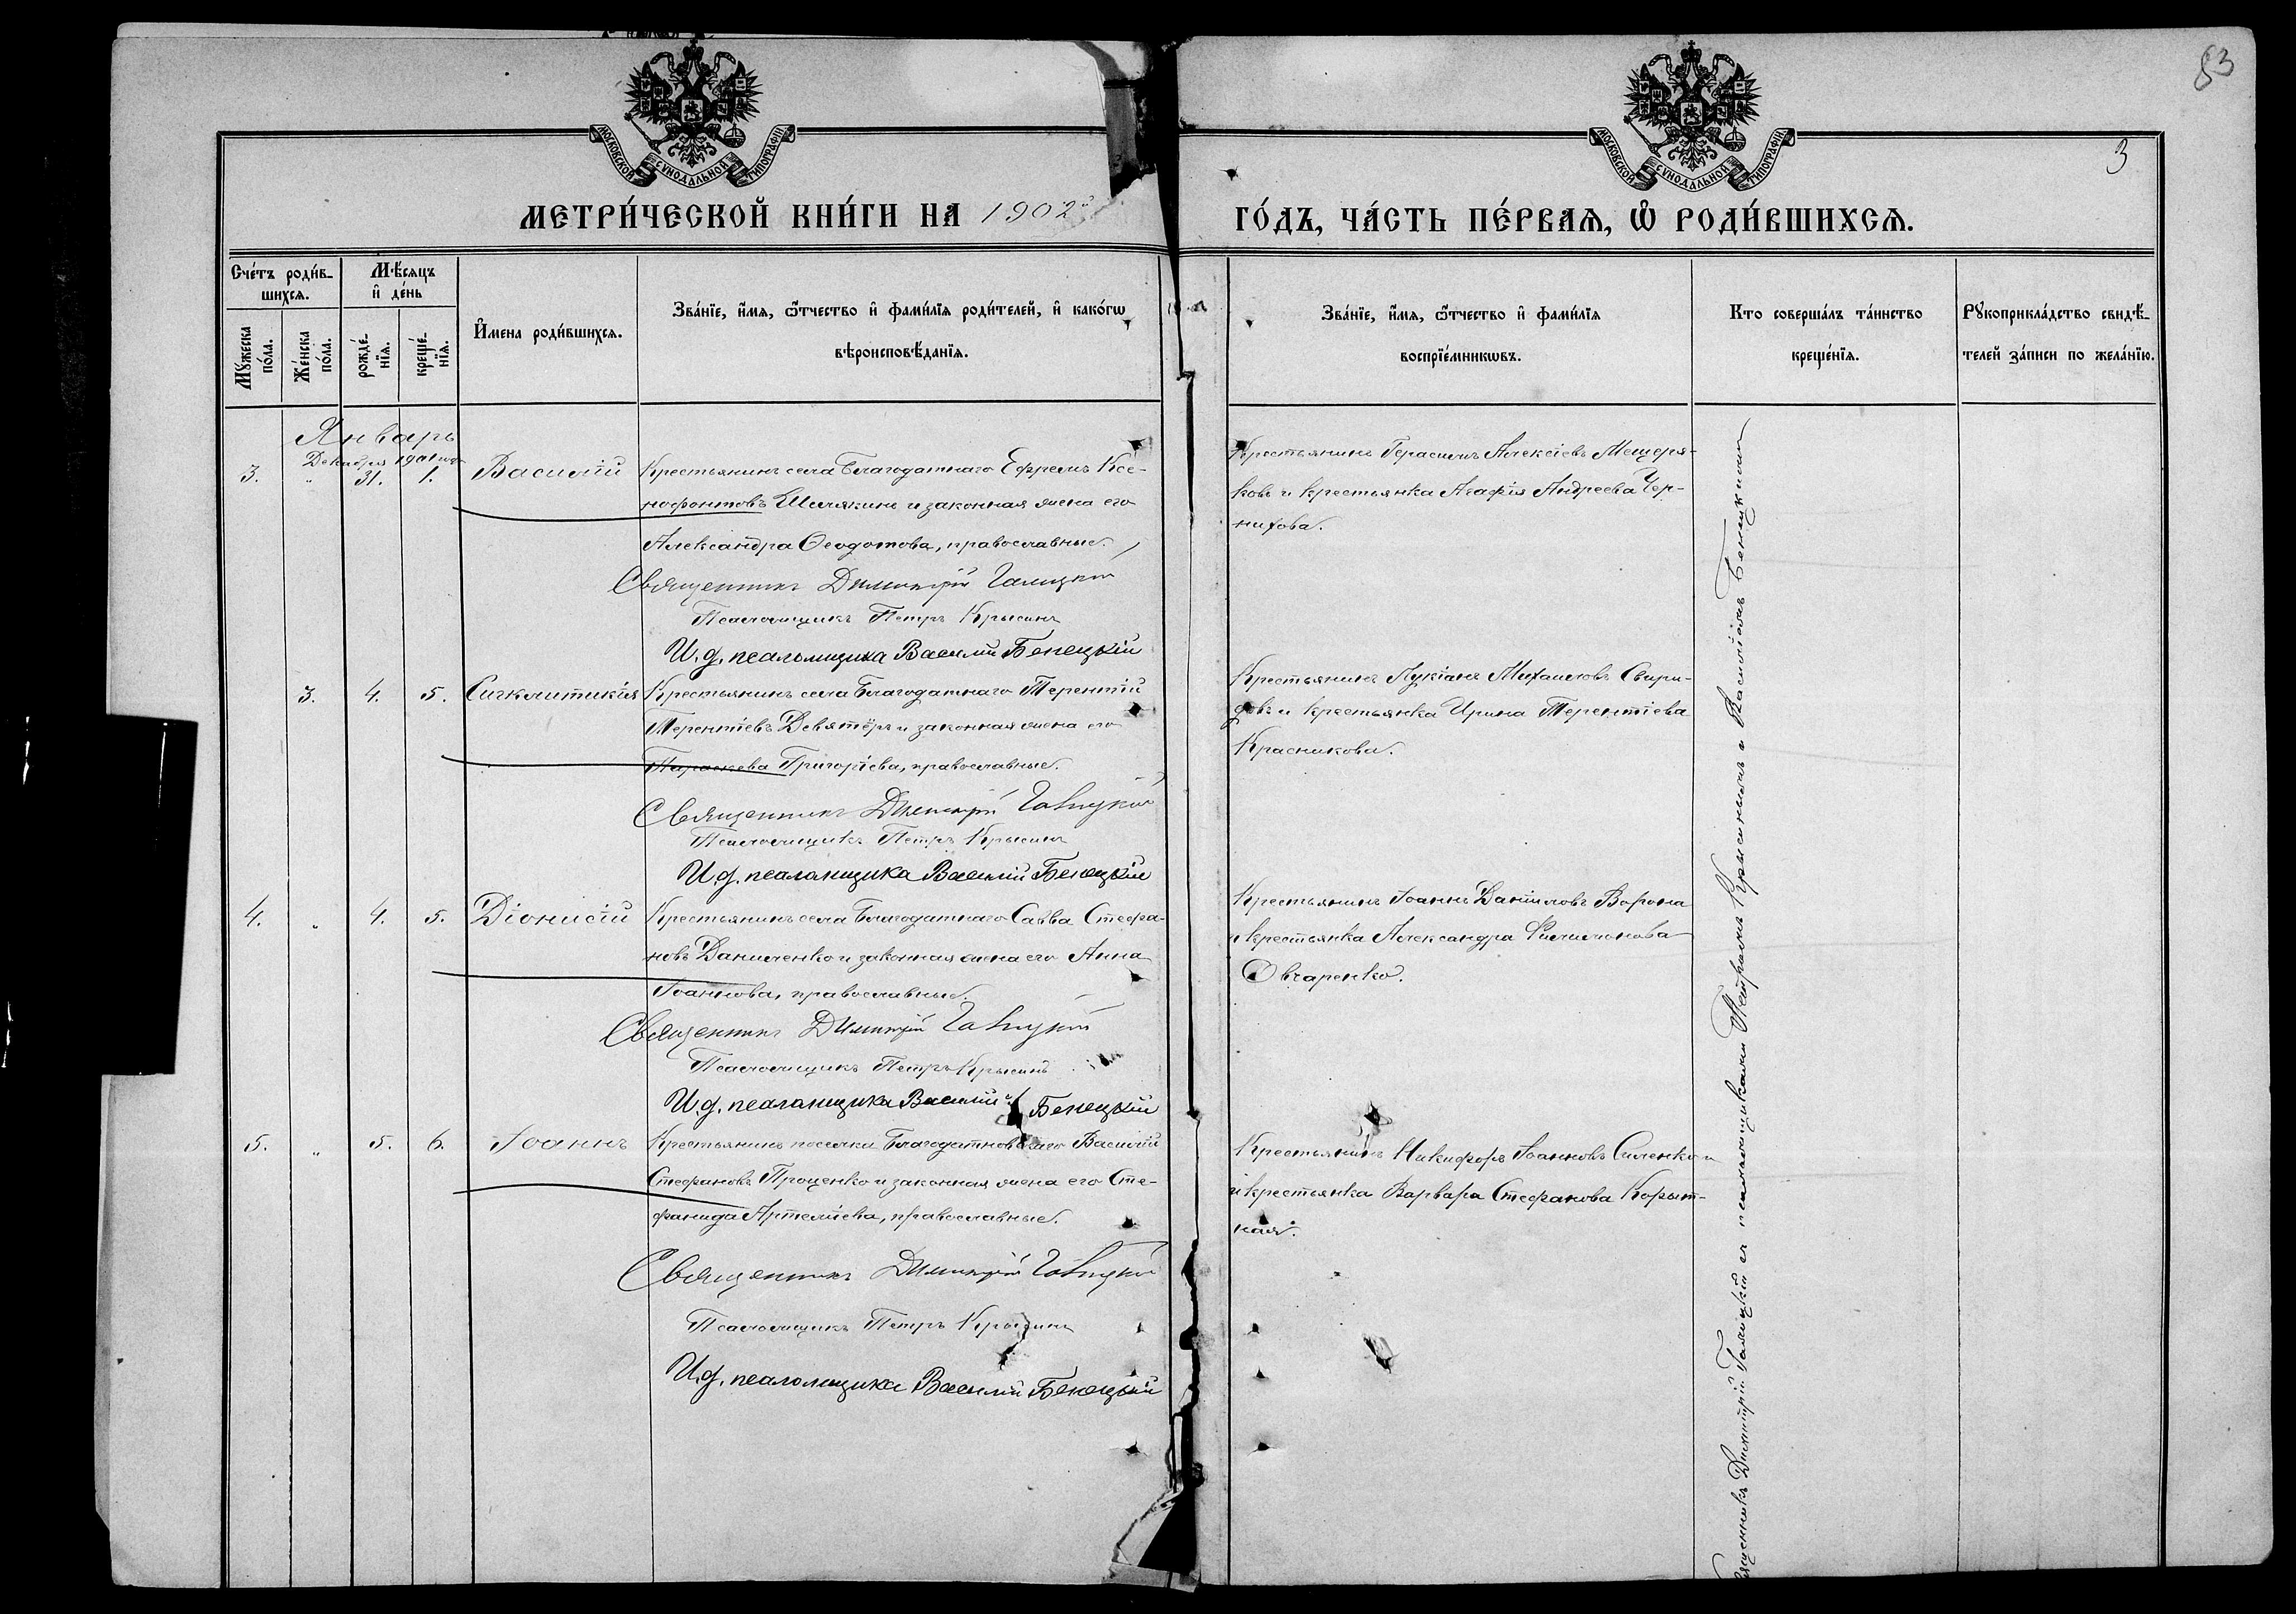 83
3
МОСКОВСКОЙ СѴНОДАЛЬНОЙ ТИПОГРАФІИ
МОСКОВСКОЙ СѴНОДАЛЬНОЙ ТИПОГРАФІИ
МЕТРИ́ЧЕСКОЙ КНИ́ГИ НА 1902й
ГО́ДЪ, ЧА́СТЬ ПЕ́РВАѦ, Ѽ РОДИ́ВШИХСѦ.
Сче́тъ роди́в-
шихсѧ.
Мѣ́сѧцъ
и҆ де́нь
Мꙋ́жеска
по́ла.
Же́нска
по́ла.
рожде́-
нїѧ.
креще́-
нїѧ.
И҆мена роди́вшихсѧ.
Зва́нїе, и҆́мѧ, ѻ҆́тчество и҆ фами́лїѧ роди́телей, и҆ како́гѡ
вѣроисповѣ́данїѧ.
Зва́нїе, и҆́мѧ, ѻ҆́тчество и҆ фами́лїѧ
воспрїе́мникѡвъ.
Кто соверша́лъ та́инство
креще́нїѧ.
Рꙋкоприкла́дство свидѣ́-
телей за́писи по жела́нїю.
Январь
Декабря 1901 года
3. " 31. 1. Василій
Крестьянинъ села Благодатнаго Ефремъ Ксе-
нофонтовъ Шелякинъ и законная жена его
Александра Ѳеодотова, православные.
Священникъ Димитрій Галицкій
Псаломщикъ Петръ Крысинъ
И. д. псаломщика Василій Бенецкій
Крестьянинъ Герасимъ Алексіевъ Мещеря-
ковъ и крестьянка Агафія Андреева Чер-
нихова.
3. 4. 5. Сигклитикія
Крестьянинъ села Благодатнаго Терентій
Терентіевъ Девятёръ и законная жена его
Параскева Григоріева, православные.
Священникъ Димитрій Галицкій
Псаломщикъ Петръ Крысинъ
И. д. псаломщика Василій Бенецкій
Крестьянинъ Лукіанъ Михаиловъ Свири-
довъ и крестьянка Ирина Терентіева
Красникова.
4. " 4. 5. Діонисій
Крестьянинъ села Благодатнаго Савва Стефа-
новъ Даниленко и законная жена его Анна
Іоаннова, православные.
Священникъ Димитрій Галицкій
Псаломщикъ Петръ Крысинъ
И. д. псаломщика Василій Бенецкій
Крестьянинъ Іоаннъ Даніиловъ Ворона
и крестьянка Александра Филимонова
Овчаренко.
5. " 5. 6. Іоаннъ
Крестьянинъ поселка Благодатновскаго Василій
Стефановъ Проценко и законная жена его Сте-
фанида Артеміева, православные.
Священникъ Димитрій Галицкій
Псаломщикъ Петръ Крысинъ
И. д. псаломщика Василій Бенецкій
Крестьянинъ Никифоръ Іоанновъ Силенко
и крестьянка Варвара Стефанова Корыт-
ная.
Священникъ Димитрій Галицкій съ псаломщиками Петромъ Крысинымъ и Василіемъ Бенецкимъ